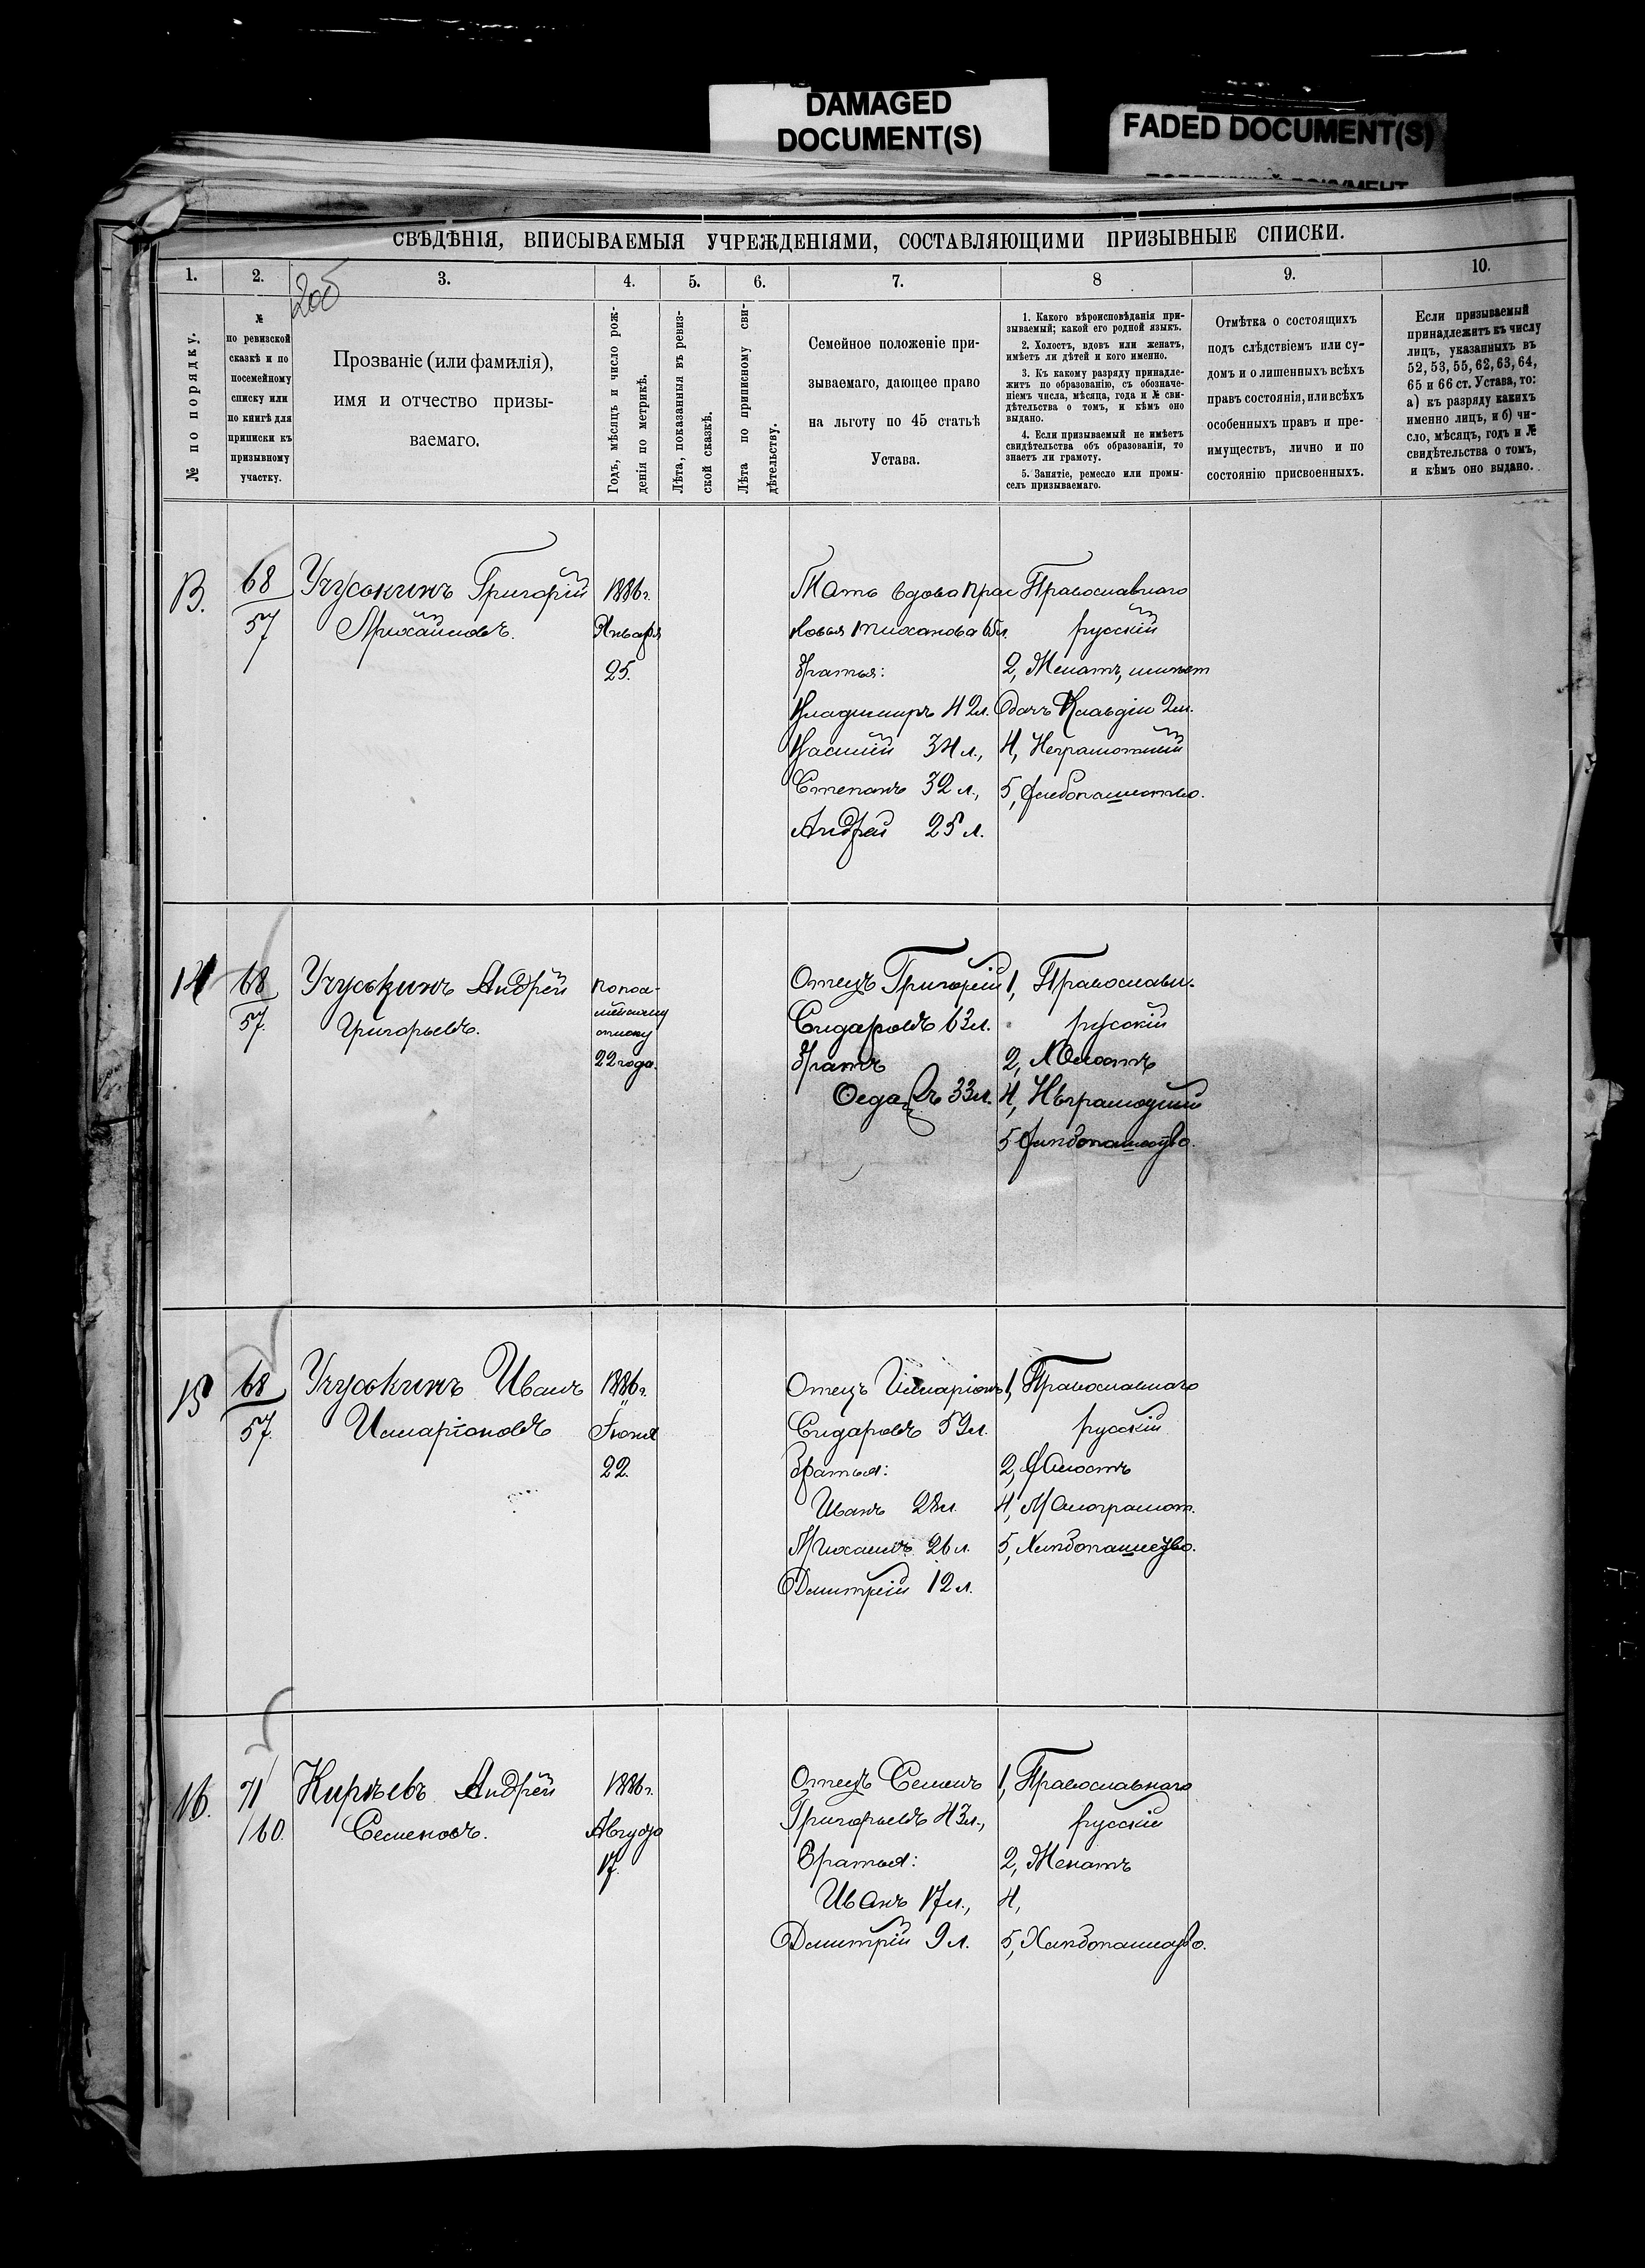 DAMAGED
DOCUMENT(S)
FADED DOCUMENT(S)
СВѢДѢНІЯ, ВПИСЫВАЕМЫЯ УЧРЕЖДЕНІЯМИ, СОСТАВЛЯЮЩИМИ ПРИЗЫВНЫЕ СПИСКИ.
1.
2.
3.
4.
5.
6.
7.
8
9.
10.
№ по порядку.
№
по ревизской
сказкѣ и по
посемейному
списку или
по книгѣ для
приписки къ
призывному
участку.
Прозваніе (или фамилія),
имя и отчество призы-
ваемаго.
Годъ, мѣсяцъ и число рож-
денія по метрикѣ.
Лѣта, показанныя въ ревиз-
ской сказкѣ.
Лѣта по приписному сви-
дѣтельству.
Семейное положеніе при-
зываемаго, дающее право
на льготу по 45 статьѣ
Устава.
1. Какого вѣроисповѣданія при-
зываемый; какой его родной языкъ.
2. Холостъ, вдовъ или женатъ,
имѣетъ ли дѣтей и кого именно.
3. Къ какому разряду принадле-
житъ по образованію, съ обозначе-
ніемъ числа, мѣсяца, года и № сви-
дѣтельства о томъ, и кѣмъ оно
выдано.
4. Если призываемый не имѣетъ
свидѣтельства объ образованіи, то
знаетъ ли грамоту.
5. Занятіе, ремесло или промы-
селъ призываемаго.
Отмѣтка о состоящихъ
подъ слѣдствіемъ или су-
домъ и о лишенныхъ всѣхъ
правъ состоянія, или всѣхъ
особенныхъ правъ и пре-
имуществъ, лично и по
состоянію присвоенныхъ.
Если призываемый
принадлежитъ къ числу
лицъ, указанныхъ въ
52, 53, 55, 62, 63, 64,
65 и 66 ст. Устава, то:
а) къ разряду какихъ
именно лицъ, и б) чи-
сло, мѣсяцъ, годъ и №
свидѣтельства о томъ,
и кѣмъ оно выдано.
13.
68
57
Учуськинъ Григорій
Михайловъ.
1886 г.
Января
25.
Мать вдова Прас
ковья Тиханова 65 л.
Братья:
Владимиръ 42 л.
Василій 34 л.,
Степанъ 32 л.,
Андрей 25 л.
Православнаго
русскій
2, Женатъ, имѣет
дочь Клавдію 2 л.
4, Неграмотный
5, Хлебопашество.
14
68
57.
Учуськинъ Андрей
Григорьевъ.
по посе-
мейному
списку
22 года.
Отецъ Григорій
Сидаровъ 63 л.
Братъ
33 л.
1, Православн.
русскій
2, Женатъ
4, Нѣграмотный
5 Хлѣбопашество.
15
68
57.
Учуськинъ Иванъ
Илларіоновъ
1886 г.
Іюня
22.
Отецъ Илларіонъ
Сидаровъ 59 л.
Братья:
Иванъ 28 л.
Михаилъ 26 л.
Дмитрій 12 л.
1, Православнаго
русскій
2, Холостъ
4, Малограмот.
5, Хлѣбопашество.
16.
71
160.
Кирѣевъ Андрей
Семеновъ.
1886 г.
Августа
17.
Отецъ Семенъ
Григорьевъ 43 л.,
Братья:
Иванъ 17 л.,
Дмитрій 9 л.
1, Православнаго
русскій
2, Женатъ
4,
5, Хлѣбопашество.